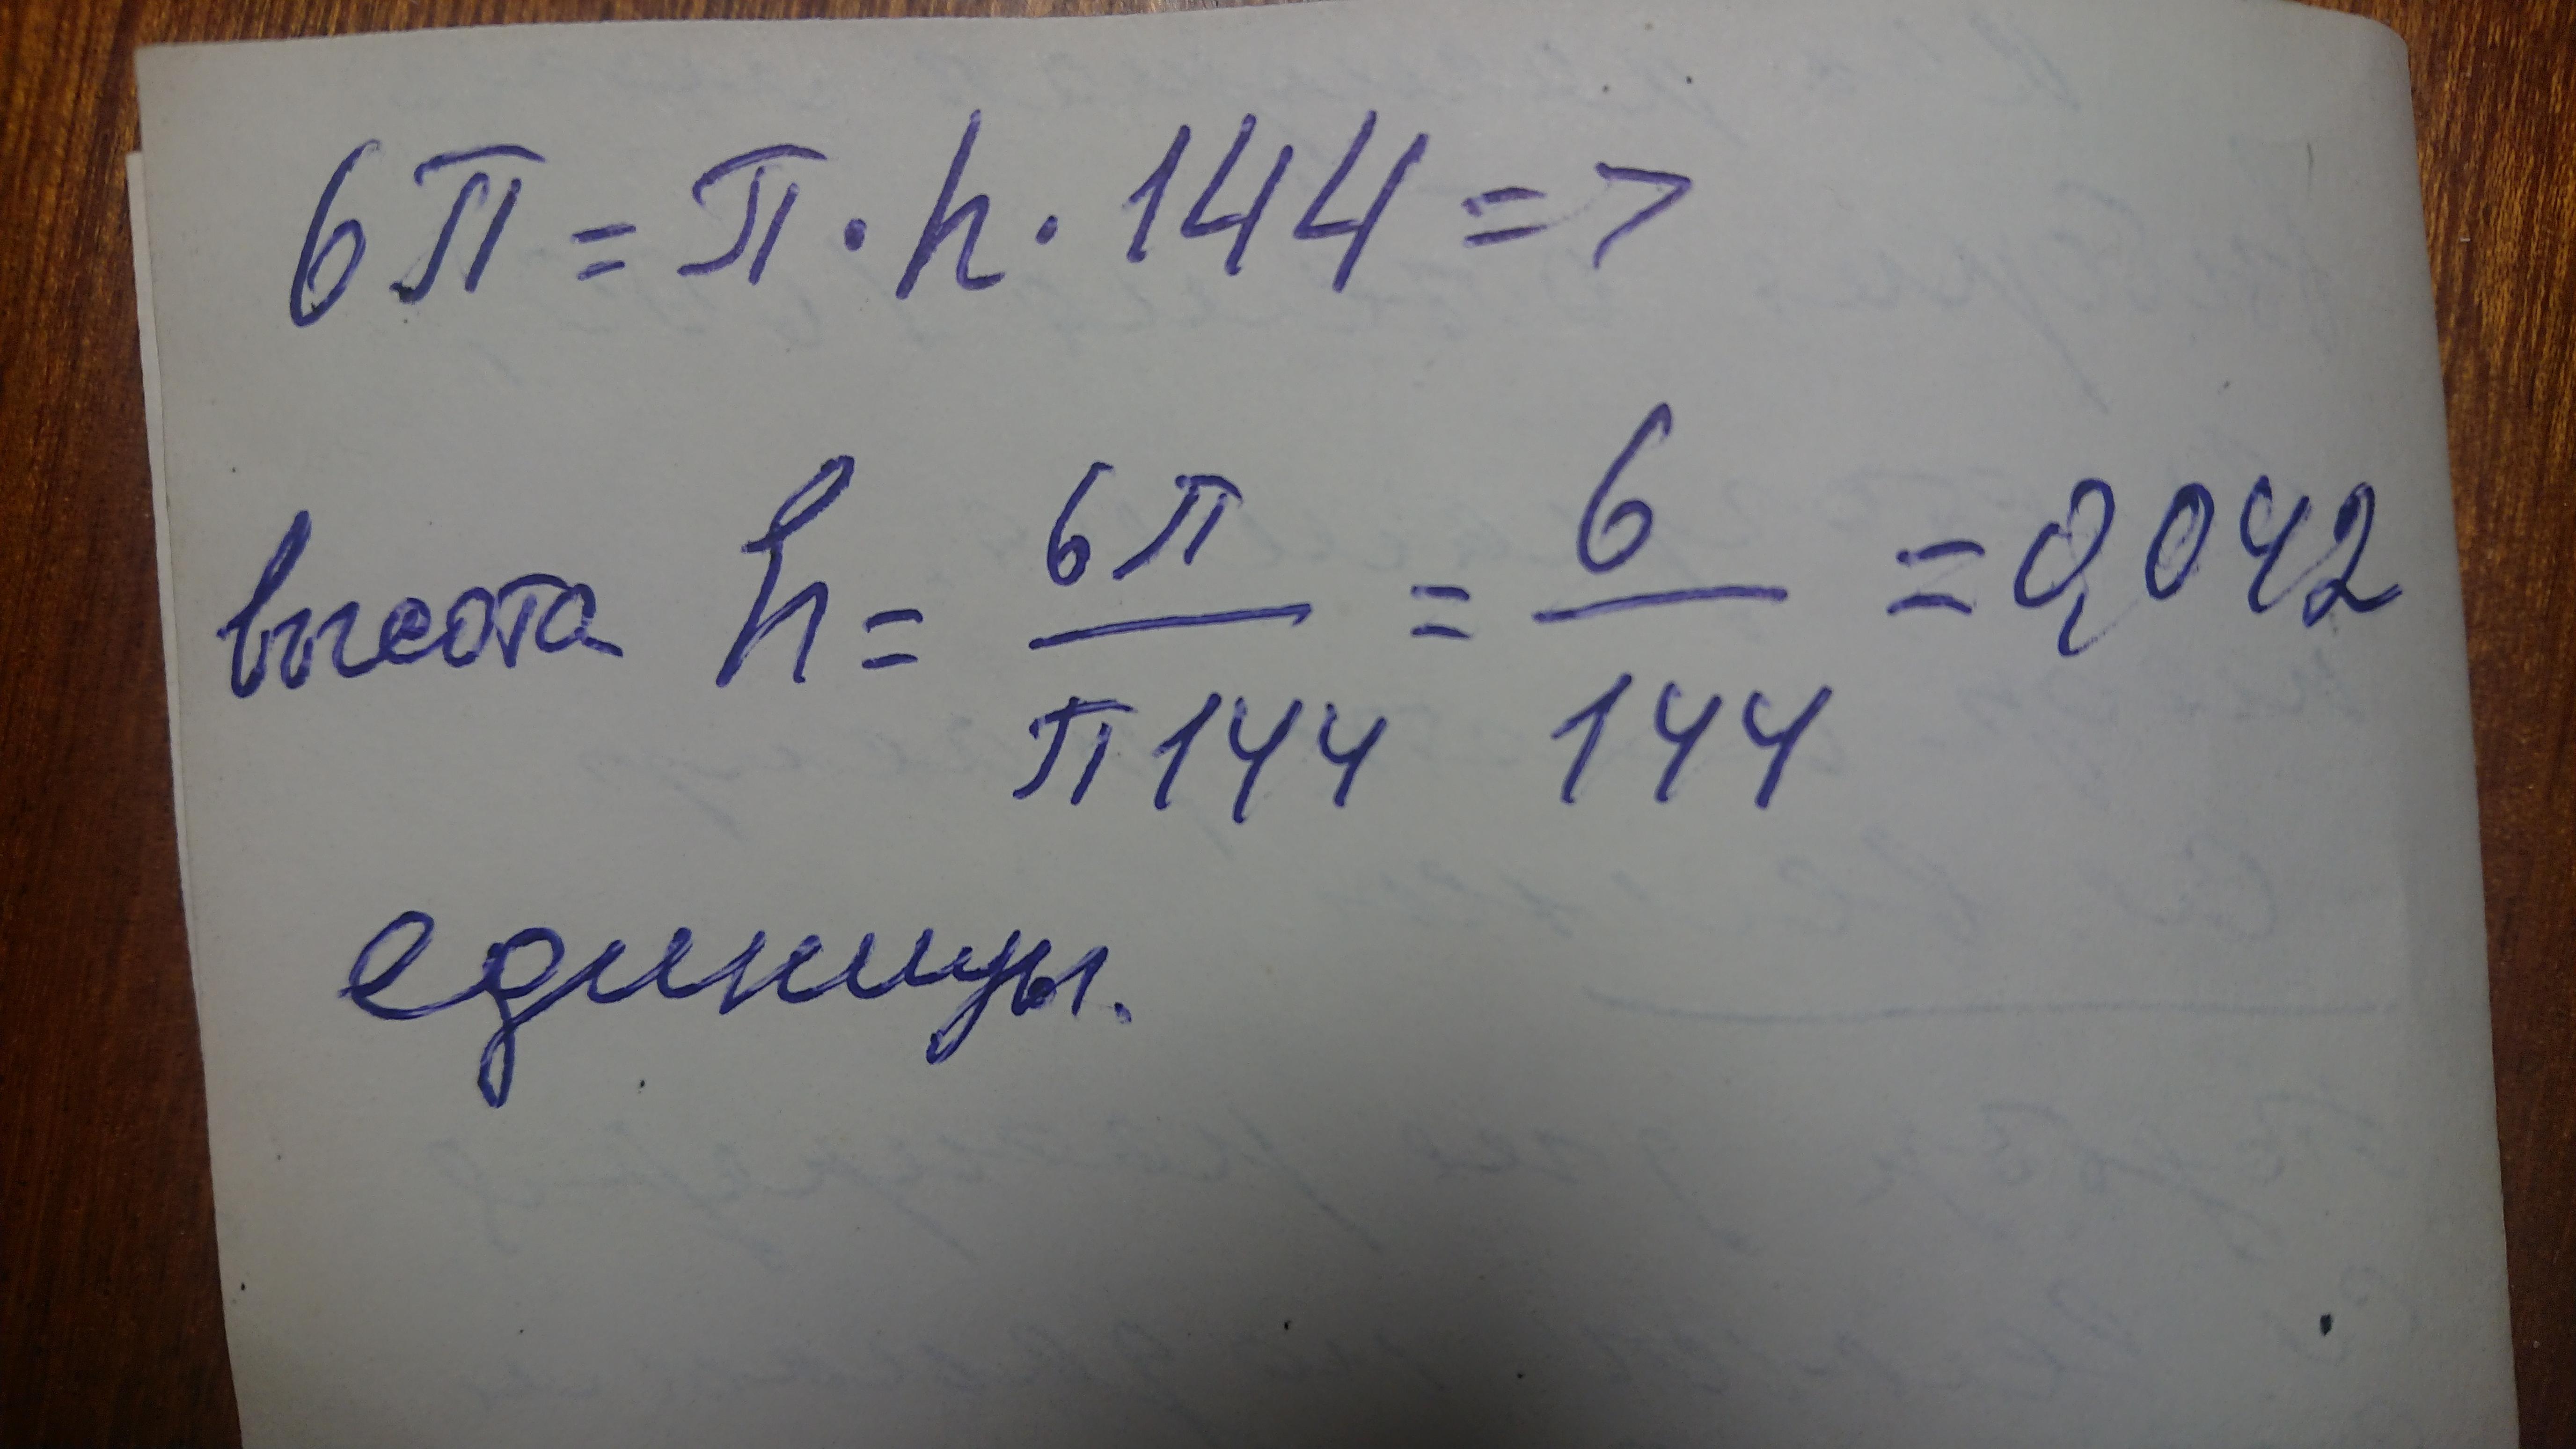 6π = π · h · 144 =>
высота h = 6π / π144 = 6 / 144 = 0,042
единицы.